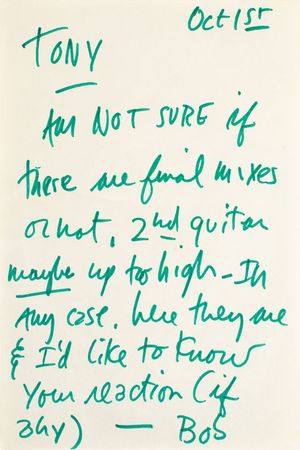 Oct 1st
TONY
AM NOT SURE if
there are final mixes
or not, 2nd guitar
maybe up to high - In
any case, here they are
& I'd like to know
your reaction (if
any) — Bob